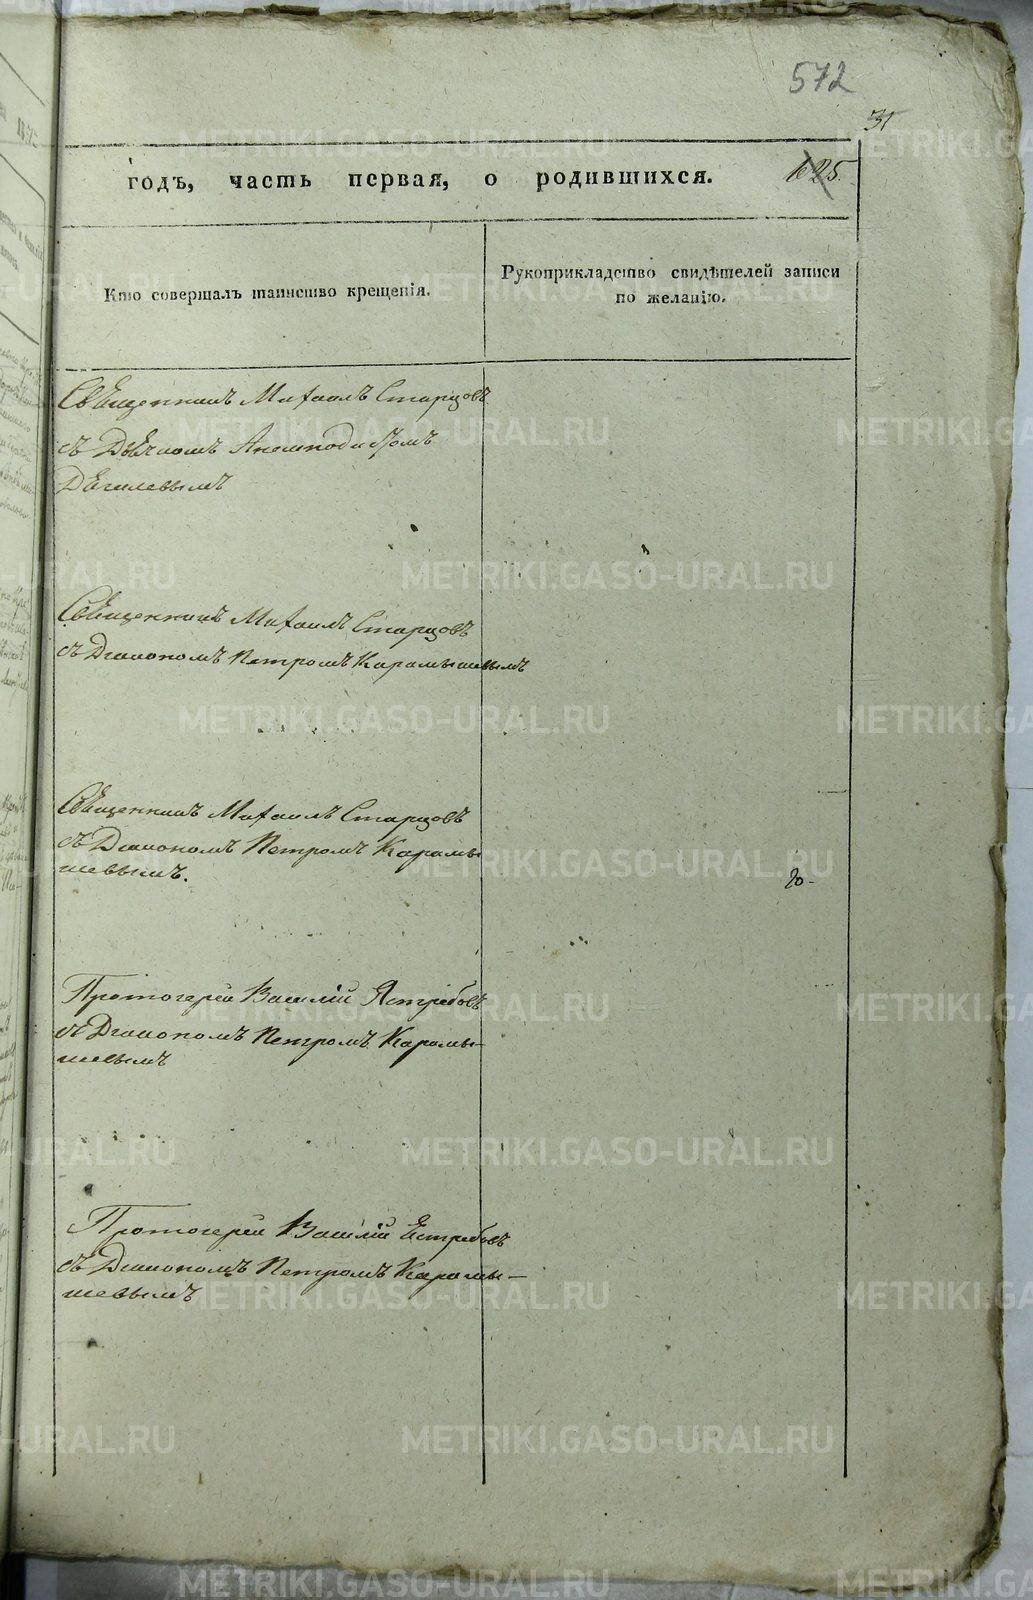 572
31
625.
годъ, часть первая, о родившихся.
Кто совершалъ таинство крещенія.
Рукоприкладство свидѣтелей записи
по желанію.
Священникъ Михаилъ Старцовъ
съ Дьячкомъ
Дѣгилевымъ
Священникъ Михаилъ Старцовъ
съ Диакономъ Петромъ Карамышевымъ
Священникъ Михаилъ Старцовъ
съ Диакономъ Петромъ Карамы
шевымъ.
Протоиерей Василій Ястребовъ
съ Диакономъ Петромъ Карамы-
шевымъ
Протоиерей Василій Естребовъ
съ Диакономъ Петромъ Карамы-
шевымъ
METRIKI.GASO-URAL.RU